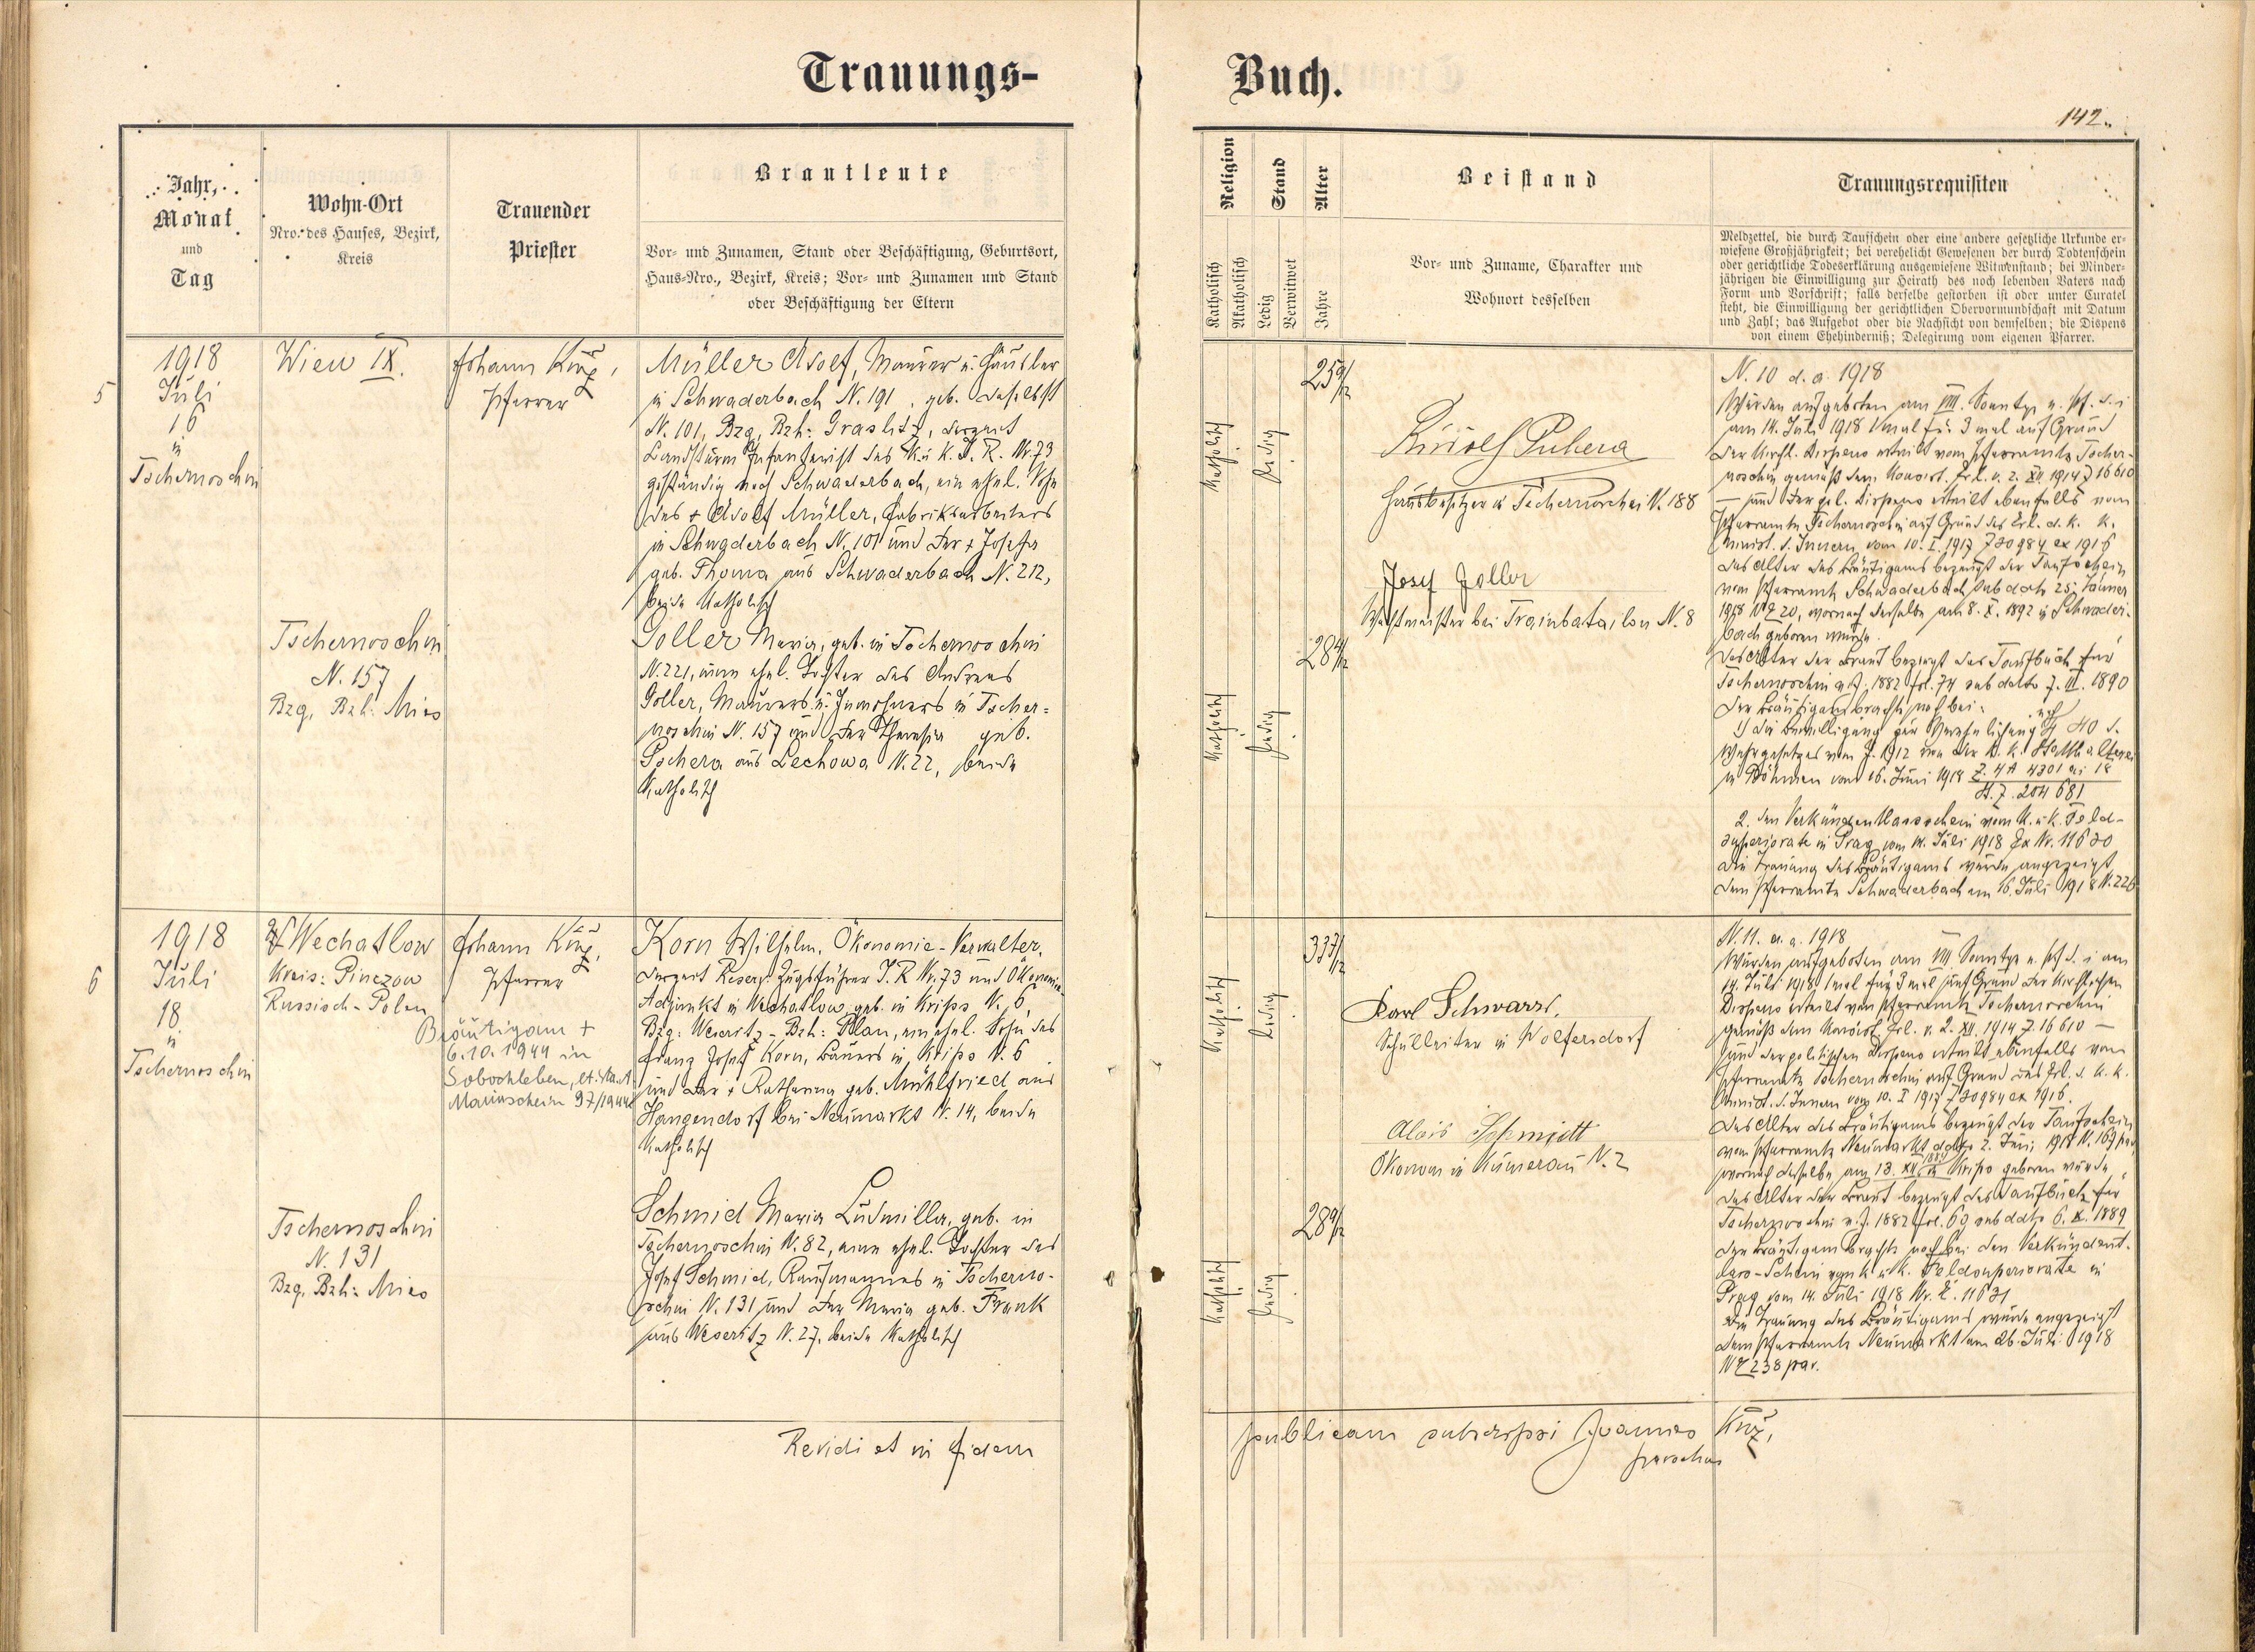 Trauungs-
Buch.
142.
Jahr,
Monat
und
Tag
Wohn-Ort
Nro. des Hauses, Bezirk,
Kreis
Trauender
Priester
Brautleute
Vor- und Zunamen, Stand oder Beschäftigung, Geburtsort,
Haus-Nro., Bezirk, Kreis; Vor- und Zunamen und Stand
oder Beschäftigung der Eltern
Religion
Katholisch
Akatholisch
Stand
Ledig
Verwitwet
Alter
Jahre
Beistand
Vor- und Zuname, Charakter und
Wohnort desselben
Trauungsrequisiten
Meldzettel, die durch Taufschein oder eine andere gesetzliche Urkunde er-
wiesene Großjährigkeit; bei verehelicht Gewesenen der durch Todtenschein
oder gerichtliche Todeserklärung ausgewiesene Witwenstand; bei Minder-
jährigen die Einwilligung zur Heirath des noch lebenden Vaters nach
Form und Vorschrift; falls derselbe gestorben ist oder unter Curatel
steht, die Einwilligung der gerichtlichen Obervormundschaft mit Datum
und Zahl; das Aufgebot oder die Nachsicht von demselben; die Dispens
von einem Ehehinderniß; Delegirung vom eigenen Pfarrer.
5
1918
Juli
16
in
Tschernoschin
Wien IX.
Johann
Pfarrer
Müller Adolf, Maurer u. Häusler
in Schwaderbach N. 191, geb. daselbst
N. 101, Bzg, Bzh: Graslitz, derzeit
Landsturm Infanterist des K. u. K. I. R. Nr. 73
zuständig nach Schwaderbach, ein ehel. Sohn
des + Adolf Müller, Fabriksarbeiters
in Schwaderbach N. 101 und der + Josefa
geb. Thoma aus Schwaderbach N. 212,
beide Katholisch
Tschernoschin
N. 157
Bzg, Bzh: Mies
Goller Maria, geb. in Tschernoschin
N. 221, eine ehel. Tochter des Andreas
Goller, Maurers u. Inwohners in Tscher=
noschin N. 157 und der Theresia geb.
Pschera aus Lechowa N. 22, beide
Katholisch
Katholisch
Ledig
25 9/12
Katholisch
Ledig
28 4/12
Rudolf
Hausbesitzer in Tschernoschin N. 188
Josef Goller
Wachtmeister bei Trainbatailon N. 8
N. 10 d. a. 1918
Wurden aufgeboten am VIII. Sonntge n. Pf. d. i
am 14. Juli 1918 1 mal für 3 mal auf Grund
der Kirchl. Dispens erteilt vom Pfarramte Tscher-
noschin gemäß dem Konsist. Erl. v. 2. XII. 1914 Z 16610
— und der pol. Dispens erteilt ebenfalls vom
Pfarramte Tschernoschin auf Grund des Erl. d. K. K.
Minist. d. Innern vom 10. I. 1917 Z 30984 ex 1916
Das Alter des Bräutigams bezeugt der Taufschein
vom Pfarramte Schwaderbach sub dato 25. Jänner
1918 NE 20, wornach derselbe am 8. X. 1892 in Schwader-
bach geboren wurde.
Das Alter der Braut bezeugt das Taufbuch für
Tschernoschin v. J. 1882 fol. 74 sub dato 7. III. 1890
Der Bräutigam brachte noch bei:
1) die Bewilligung zur Verehelichung nach § 40 d.
Wehrgesetzes vom J. 1912 von der K. K. Statthalterei
in Böhmen vom 16. Juni 1918
2. den Verkündentlassschein vom K. u. K. Feld-
superiorate in Prag vom 14. Juli 1918 Ex Nr. 11630
Die Trauung des Bräutigams wurde angezeigt
dem Pfarramte Schwaderbach am 16. Juli 1918 N. 226
6
1918
Juli
18
in
Tschernoschin
Wechatlow
Kreis: Pinczow
Russisch-Polen
Johann
Pfarrer
Bräutigam +
6.10.1944 in
Sobochleben, lt.
Mariaschein 97/1944
Korn Wilhelm, Ökonomie-Verwalter,
derzeit Reserv. Zugsführer I. R. Nr. 73 und Ökonomie-
Adjunkt in Wechatlow, geb. in Kripo N. 6,
Bzg: Weseritz - Bzh: Plan, ein ehel. Sohn des
Franz Josef Korn, Bauers in Kripo N. 6
und der + Katharina geb. Mühlfried aus
Hangendorf bei Neumarkt N. 14, beide
Katholisch
Tschernoschin
N. 131
Bzg, Bzh: Mies
Schmid Maria Ludmilla, geb. in
Tschernoschin N. 82, eine ehel. Tochter des
Josef Schmid, Kaufmannes in Tscherno-
schin N. 131 und der Maria geb. Frank
aus Weseritz N. 27, beide Katholisch
Katholisch
Ledig
33 7/12
Katholisch
Ledig
28 9/12
Karl Schwarz,
Schulleiter in Wolfersdorf
Alois Schmidt
Ökonom in N. 2
N. 11. d. a. 1918
Wurden aufgeboten am VIII Sonntge n. Pf. d. i am
14. Juli 1918 1 mal für 3 mal auf Grund der Kirchlichen
Dispens erteilt vom Pfarramte Tschernoschin
gemäß dem Konsist. Erl. v. 2. XII. 1914 Z. 16610 —
und der politischen Dispens erteilt ebenfalls vom
Pfarramte Tschernoschin auf Grund des Erl. d. K. K.
Minist. d. Innern vom 10. I 1917 Z 30984 ex 1916.
Das Alter des Bräutigams bezeugt der Taufschein
vom Pfarramte Neumarkt ddto 2. Juni 1918 N. 169 par,
wornach derselbe am 13. XII. 1884 in Kripo geboren wurde,
das Alter der Braut bezeugt das Taufbuch für
Tschernoschin v. J. 1882 fol. 69 sub ddto 6. X. 1889
Der Bräutigam brachte noch bei den Verkündent-
lass-Schein vom K. u. K. Feldsuperiorate in
Prag vom 14. Juli 1918 Nr. E. 11631
Die Trauung des Bräutigams wurde angezeigt
dem Pfarramte Neumarkt am 26. Juli 1918
NE 238 par.
Revidi et in fidem
publicam subscripsi Joannes
parochus